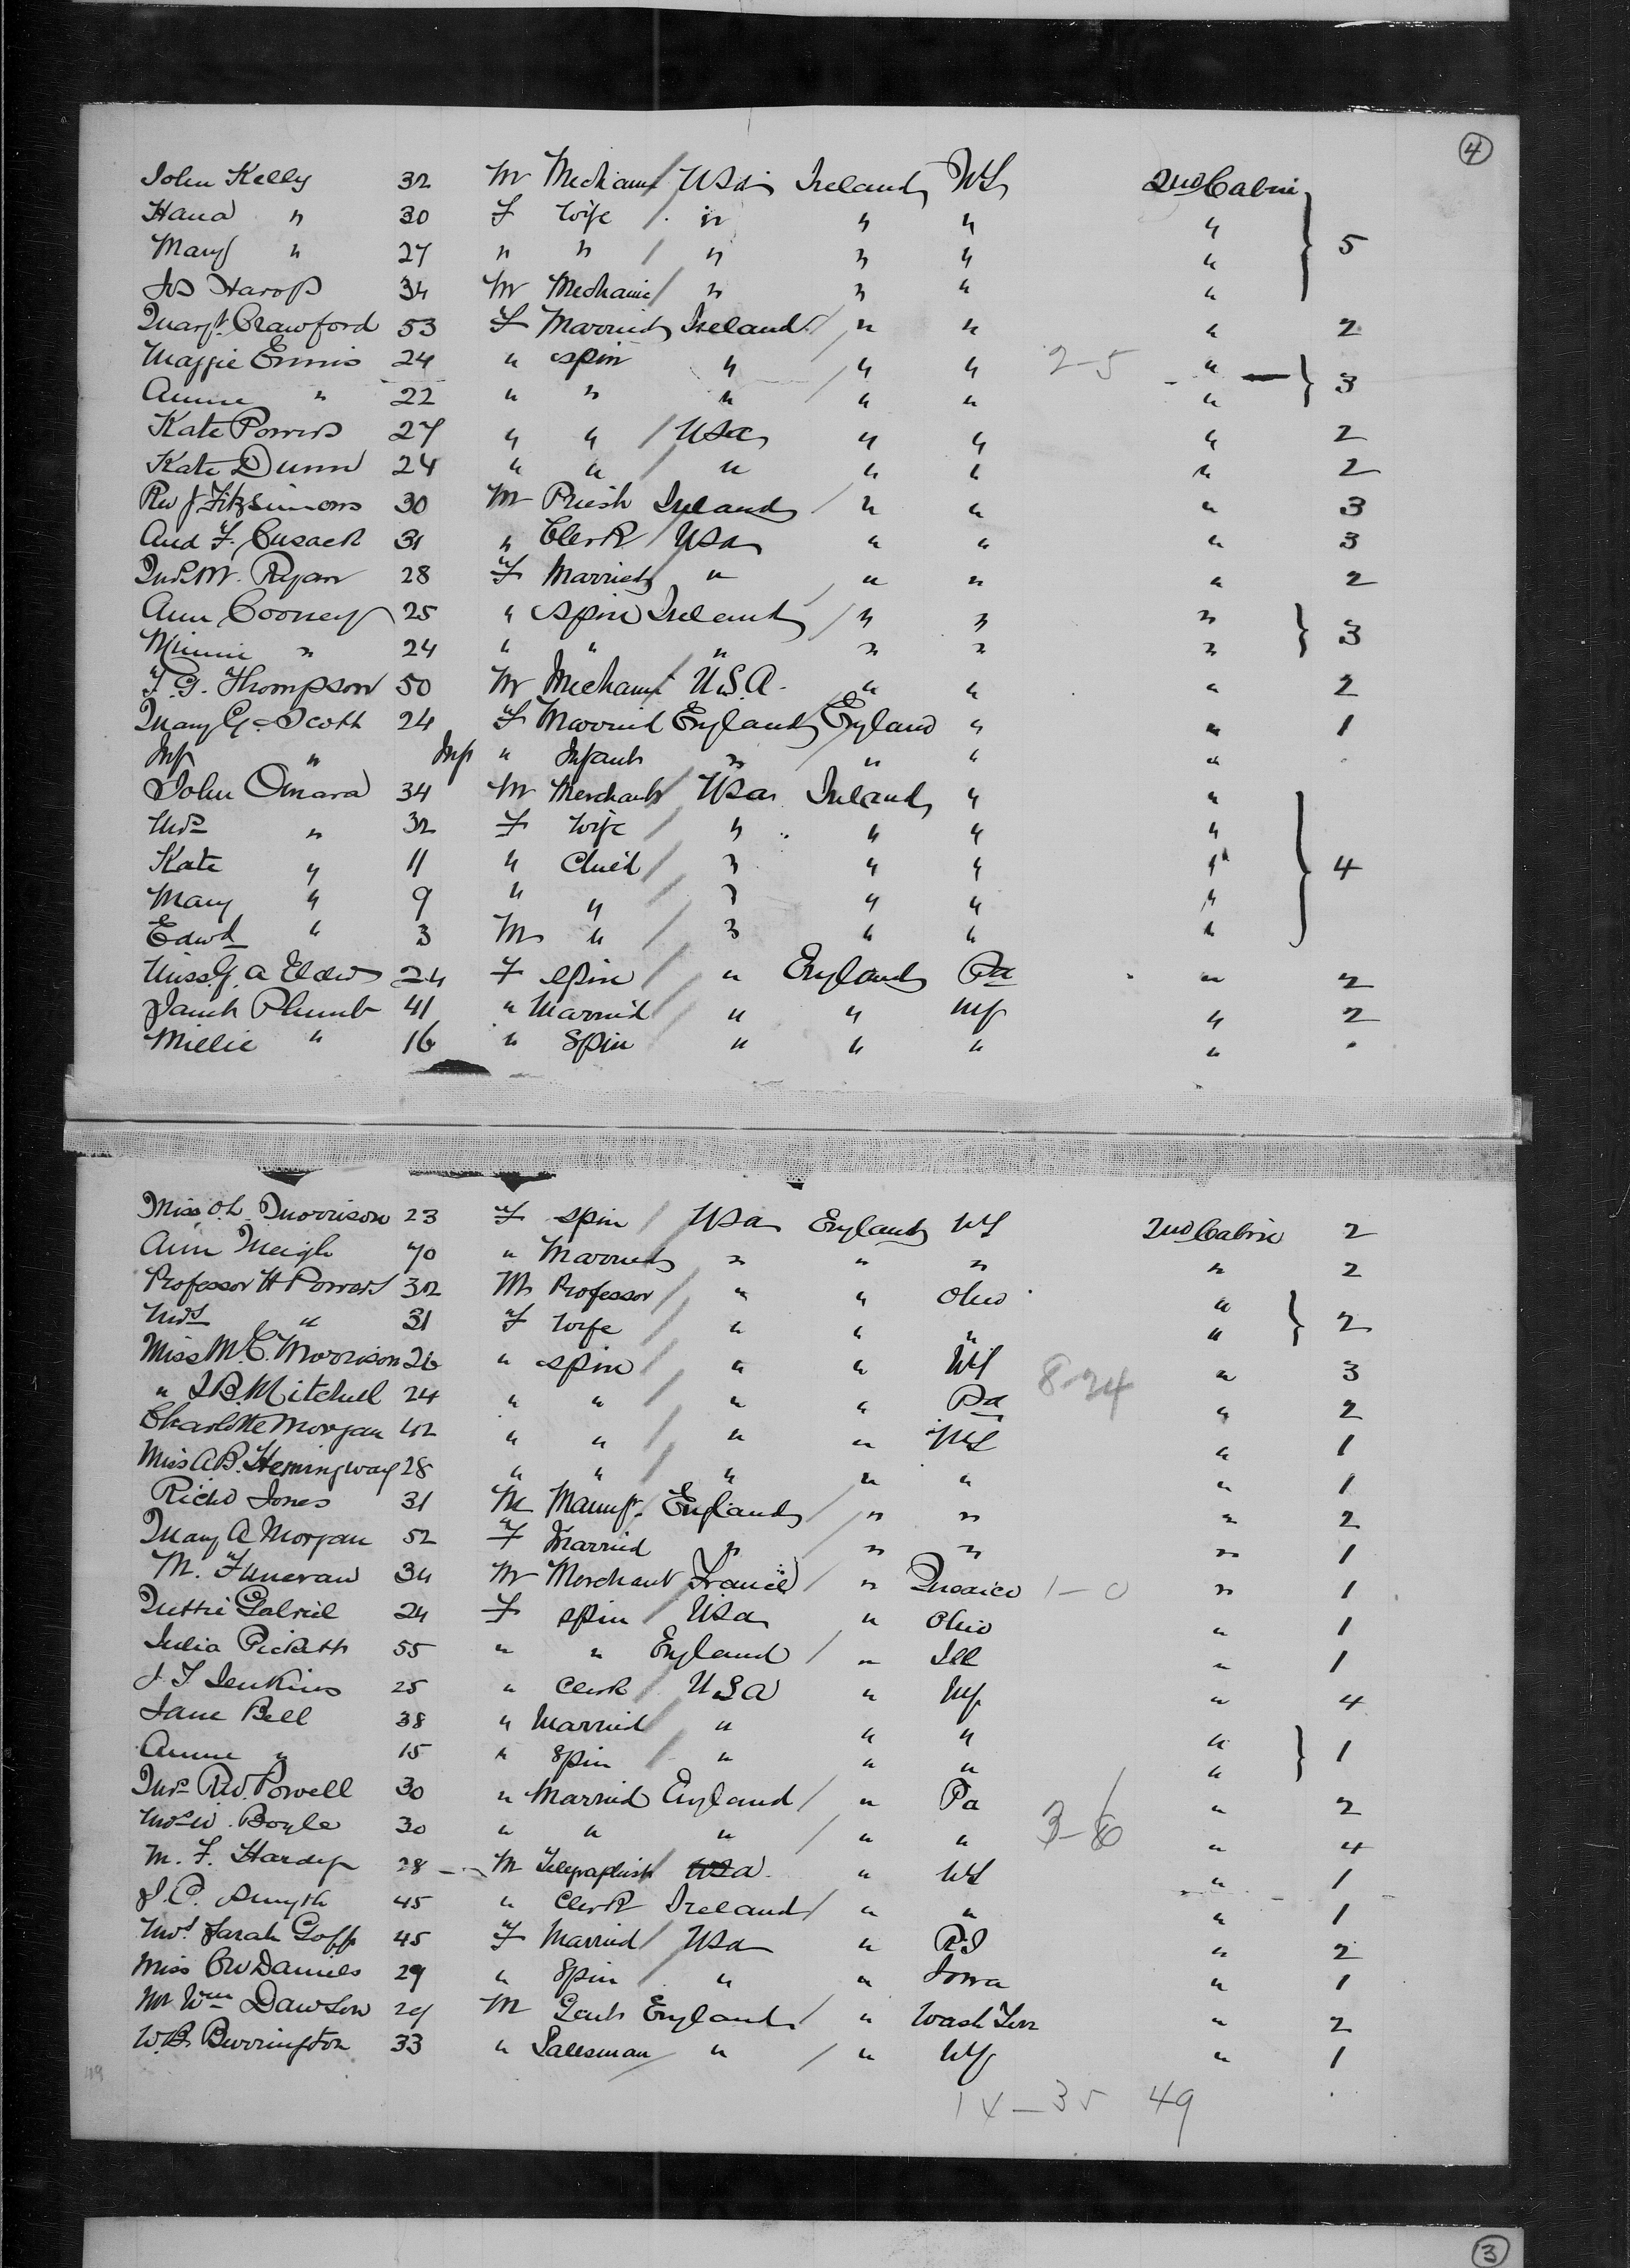 4
John Kelly 32 M Mechanic / USA Ireland NY 2nd Cabin
Hana " 30 F Wife / " " " "
Mary " 27 " " / " " " " } 5
Jos Harop 34 M Mechanic / " " " "
Margt. Crawford 53 F Married Ireland / " " " 2
Maggie Ennis 24 " spin " / " " 2-5 "
Annie " 22 " " " / " " " } 3
Kate Powers 27 " " / USA " " " 2
Kate Dunn 24 " " / " " " " 2
Rev J Fitzsimons 30 M Priest Ireland / " " " 3
And F. Cusack 31 " Clerk / USA " " " 3
Mrs M. Ryan 28 F Married " " " " 2
Ann Cooney 25 " spin Ireland / " " "
Minnie " 24 " " " " " " } 3
T. G. Thompson 50 M Mechanic / U.S.A. " " " 2
Mary G. Scott 24 F Married England / England " " 1
Inf " Inf " Infant " / " " "
John Omara 34 M Merchant / USA Ireland " "
Mrs " 32 F Wife / " " " "
Kate " 11 " Child / " " " " } 4
Mary " 9 " " / " " " "
Edwd " 3 M " / " " " "
Miss G. A 24 F spin / " England Pa " 2
Plumb 41 " Married / " " NY " 2
Millie " 16 " Spin " " " "
Miss O. L. Morrison 23 F spin / USA England NY 2nd Cabin 2
Ann Meigh 70 " Married " " " " 2
Professor H Powers 32 M Professor / " " Ohio "
Mrs " 31 F Wife / " " " " } 2
Miss M. E. Morrison 26 " spin / " " NY 8-24 " 3
" L B. Mitchell 24 " " / " " Pa " 2
Charlotte Morgan 42 " " / " " NY " 1
Miss A B. Hemingway 28 " " / " " " " 1
Richd Jones 31 M Manufr. England / " " " 2
Mary A Morgan 52 F Married " / " " " 1
M. 34 M Merchant France / " Mexico 1-0 " 1
Nettie Gabriel 24 F spin / USA " Ohio " 1
Julia Pickett 55 " " England / " Ill " 1
J T Jenkins 25 " Clerk / USA " NY " 4
Jane Bell 38 " Married / " " " "
Annie " 15 " Spin / " " " " } 1
Mrs Rd. Powell 30 " Married England / " Pa " 2
Mrs W. Boyle 30 " " " / " " 3-6 " 4
M. F. Hardy 28 M Telegraphist USA " NY " 1
J. C. Smyth 45 " Clerk Ireland / " " " 1
Mrs Sarah Goff 45 F Married / USA " R.I " 2
Miss Daniels 29 " Spin / " " Iowa " 1
Mr Wm Dawson 29 M Gent England / " Wash Terr " 2
W. B. Burrington 33 " Salesman " / " NY " 1
14-35 49
49
3